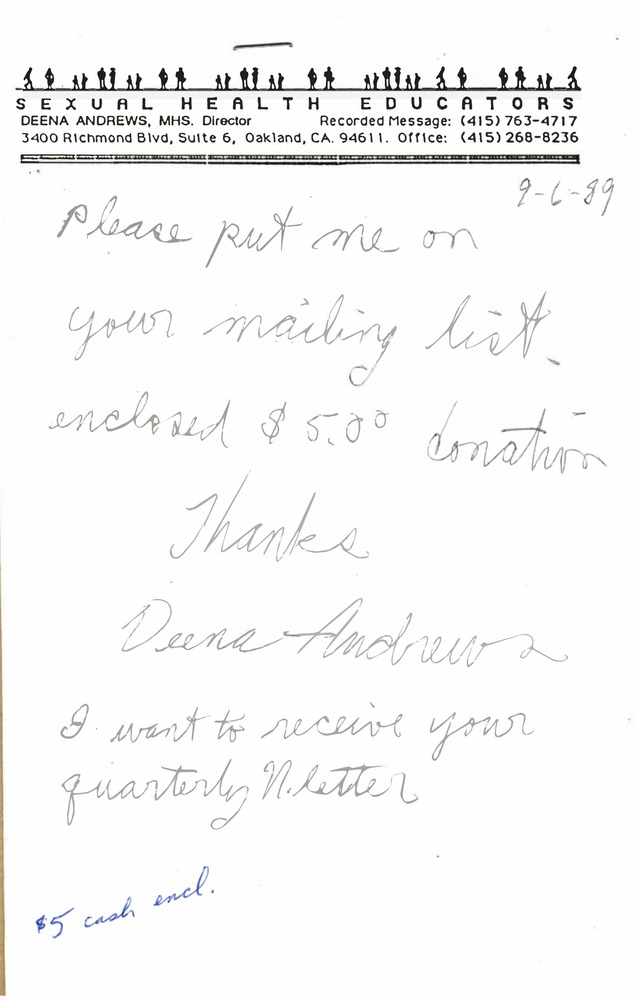 SEXUAL HEALTH EDUCATORS
DEENA ANDREWS, MHS. Director Recorded Message: (415) 763-4717
3400 Richmond Blvd, Suite 6, Oakland, CA. 94611. Office: (415) 268-8236
9-6-89
Please put me on
your mailing list.
enclosed $5.00 donation
Thanks
Deena Andrews
I want to receive your
quarterly N.letter
$5 cash encl.